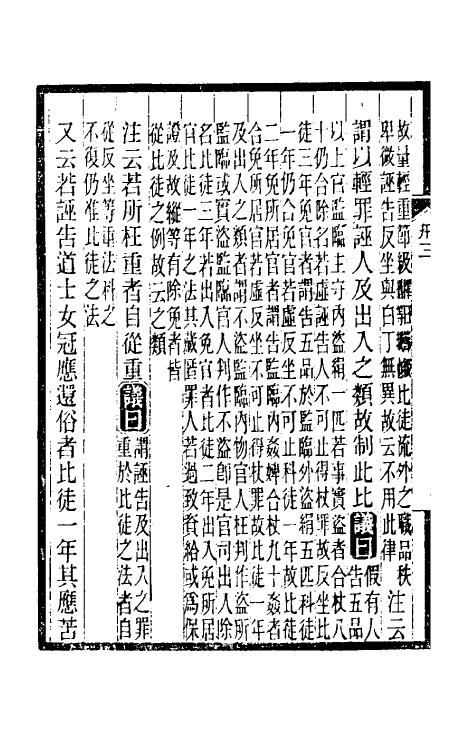 故量輕重節級比徒流外之職品秩
卑微誣告反坐與白丁無異故云不用此律 注云
謂以輕罪誣人及出入之類故制此比 議曰 假有人告五品
以上官監臨主守內盜絹一匹若事實盜者合杖八
十仍合除名若虛誣告人不可止得杖罪故反坐比
徒三年免官者謂告五品於監臨外盜絹五匹科徒
一年仍合免官若虛反坐不可止科徒一年故比徒
二年免所居官者謂告監臨內姦婢合杖九十姦者
合免所居官若虛反坐不可止得杖罪故比徒一年
及出入之類者謂不盜監臨內物官人枉判作盜所
監臨或實盜監臨官人判作不盜卽是官司出入除
名比徒三年若出入免官者比徒二年出入免所居
官比徒一年之法其藏匿罪人若過致資給或爲保
證及故縱等有除免者皆
從比徒之例故云之類
注云若所枉重者自從重 議曰 謂誣告及出入之罪重於比徒之法者自
從反坐等重法科之
不復仍准比徒之法
又云若誣告道士女冠應還俗者比徒一年其應苦